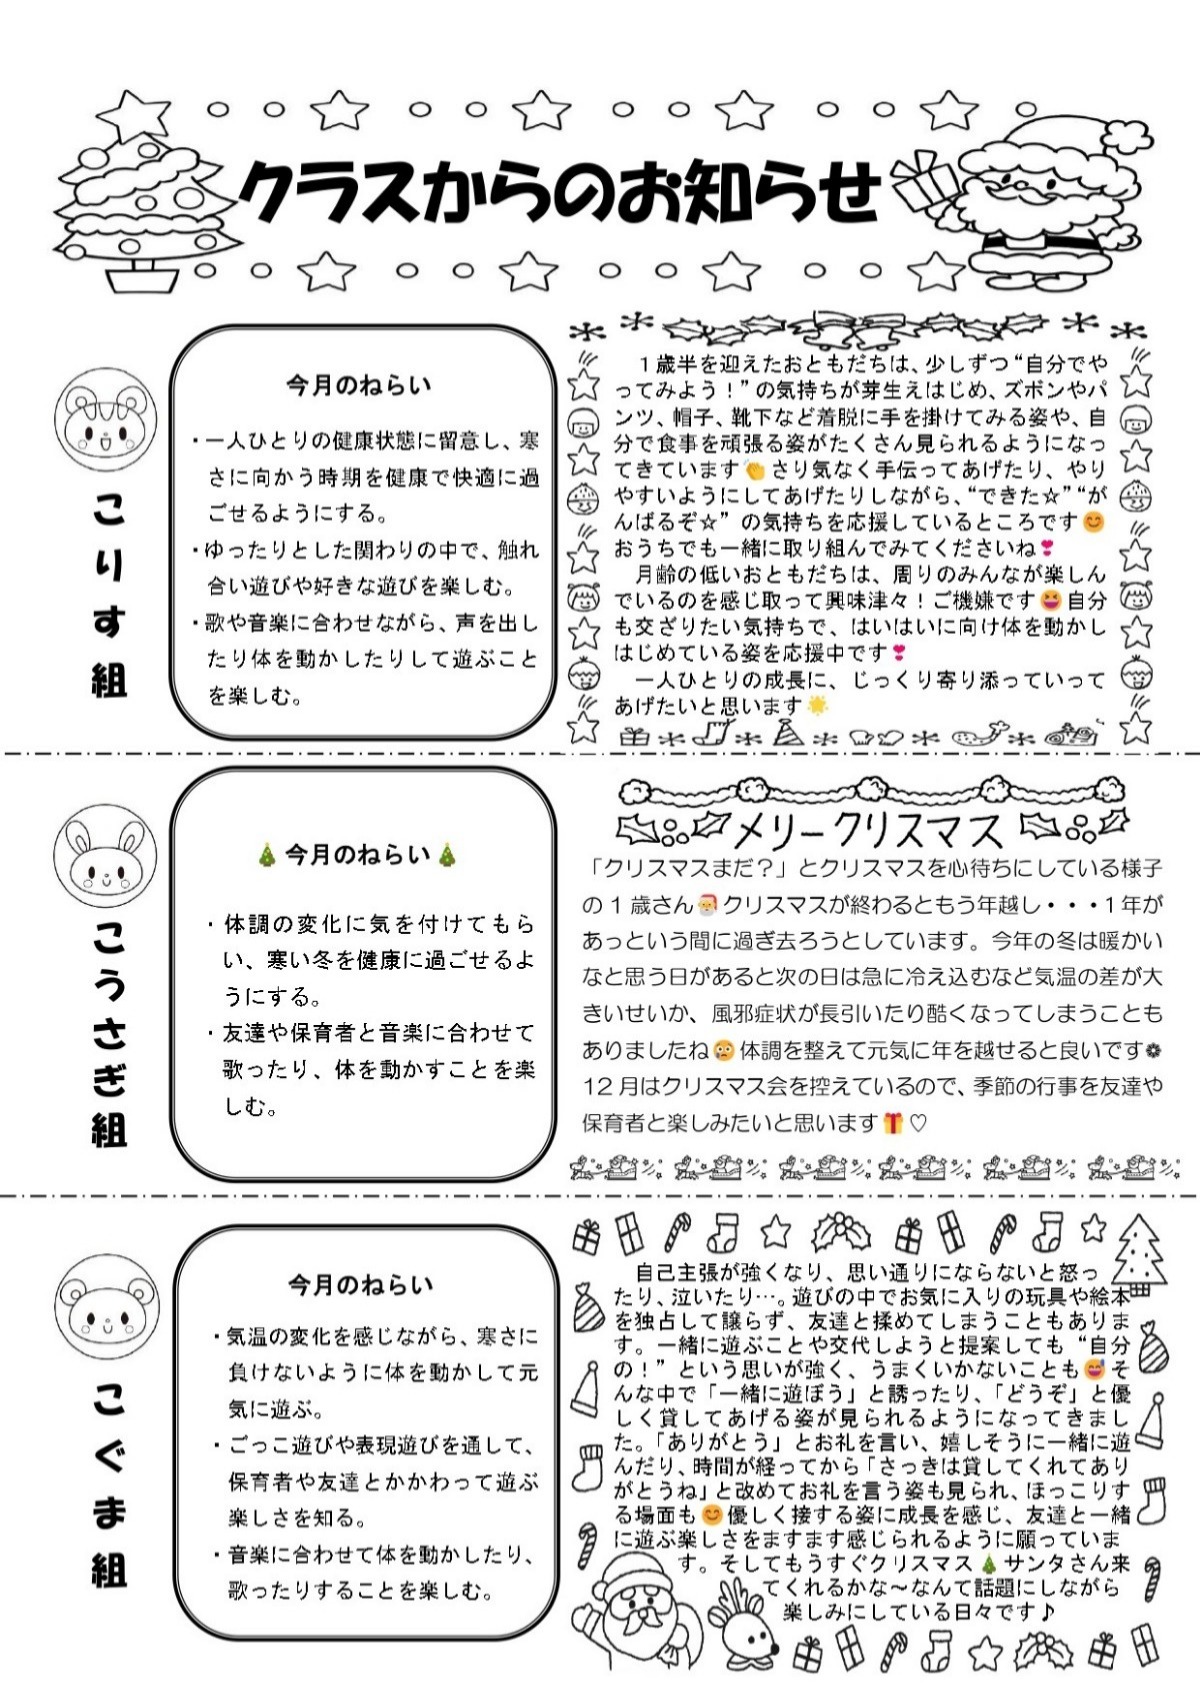 クラスからのお知らせ
こりす組
今月のねらい
・一人ひとりの健康状態に留意し、寒
さに向かう時期を健康で快適に過
ごせるようにする。
・ゆったりとした関わりの中で、触れ
合い遊びや好きな遊びを楽しむ。
・歌や音楽に合わせながら、声を出し
たり体を動かしたりして遊ぶこと
を楽しむ。
１歳半を迎えたおともだちは、少しずつ“自分でや
ってみよう！”の気持ちが芽生えはじめ、ズボンやパ
ンツ、帽子、靴下など着脱に手を掛けてみる姿や、自
分で食事を頑張る姿がたくさん見られるようになっ
てきています👏さり気なく手伝ってあげたり、やり
やすいようにしてあげたりしながら、“できた☆”“が
んばるぞ☆”の気持ちを応援しているところです😊
おうちでも一緒に取り組んでみてくださいね❣
月齢の低いおともだちは、周りのみんなが楽しん
でいるのを感じ取って興味津々！ご機嫌です😆自分
も交ざりたい気持ちで、はいはいに向け体を動かし
はじめている姿を応援中です❣
一人ひとりの成長に、じっくり寄り添っていって
あげたいと思います🌟
こうさぎ組
🎄今月のねらい🎄
・体調の変化に気を付けてもら
い、寒い冬を健康に過ごせるよ
うにする。
・友達や保育者と音楽に合わせて
歌ったり、体を動かすことを楽
しむ。
メリークリスマス
「クリスマスまだ？」とクリスマスを心待ちにしている様子
の１歳さん🎅クリスマスが終わるともう年越し・・・１年が
あっという間に過ぎ去ろうとしています。今年の冬は暖かい
なと思う日があると次の日は急に冷え込むなど気温の差が大
きいせいか、風邪症状が長引いたり酷くなってしまうことも
ありましたね😢体調を整えて元気に年を越せると良いです❁
12月はクリスマス会を控えているので、季節の行事を友達や
保育者と楽しみたいと思います🎁♡
こぐま組
今月のねらい
・気温の変化を感じながら、寒さに
負けないように体を動かして元
気に遊ぶ。
・ごっこ遊びや表現遊びを通して、
保育者や友達とかかわって遊ぶ
楽しさを知る。
・音楽に合わせて体を動かしたり、
歌ったりすることを楽しむ。
自己主張が強くなり、思い通りにならないと怒っ
たり、泣いたり…。遊びの中でお気に入りの玩具や絵本
を独占して譲らず、友達と揉めてしまうこともありま
す。一緒に遊ぶことや交代しようと提案しても“自分
の！”という思いが強く、うまくいかないことも😅そ
んな中で「一緒に遊ぼう」と誘ったり、「どうぞ」と優
しく貸してあげる姿が見られるようになってきまし
た。「ありがとう」とお礼を言い、嬉しそうに一緒に遊
んだり、時間が経ってから「さっきは貸してくれてあり
がとうね」と改めてお礼を言う姿も見られ、ほっこりす
る場面も😊優しく接する姿に成長を感じ、友達と一緒
に遊ぶ楽しさをますます感じられるように願っていま
す。そしてもうすぐクリスマス🎄サンタさん来
てくれるかな～なんて話題にしながら
楽しみにしている日々です♪